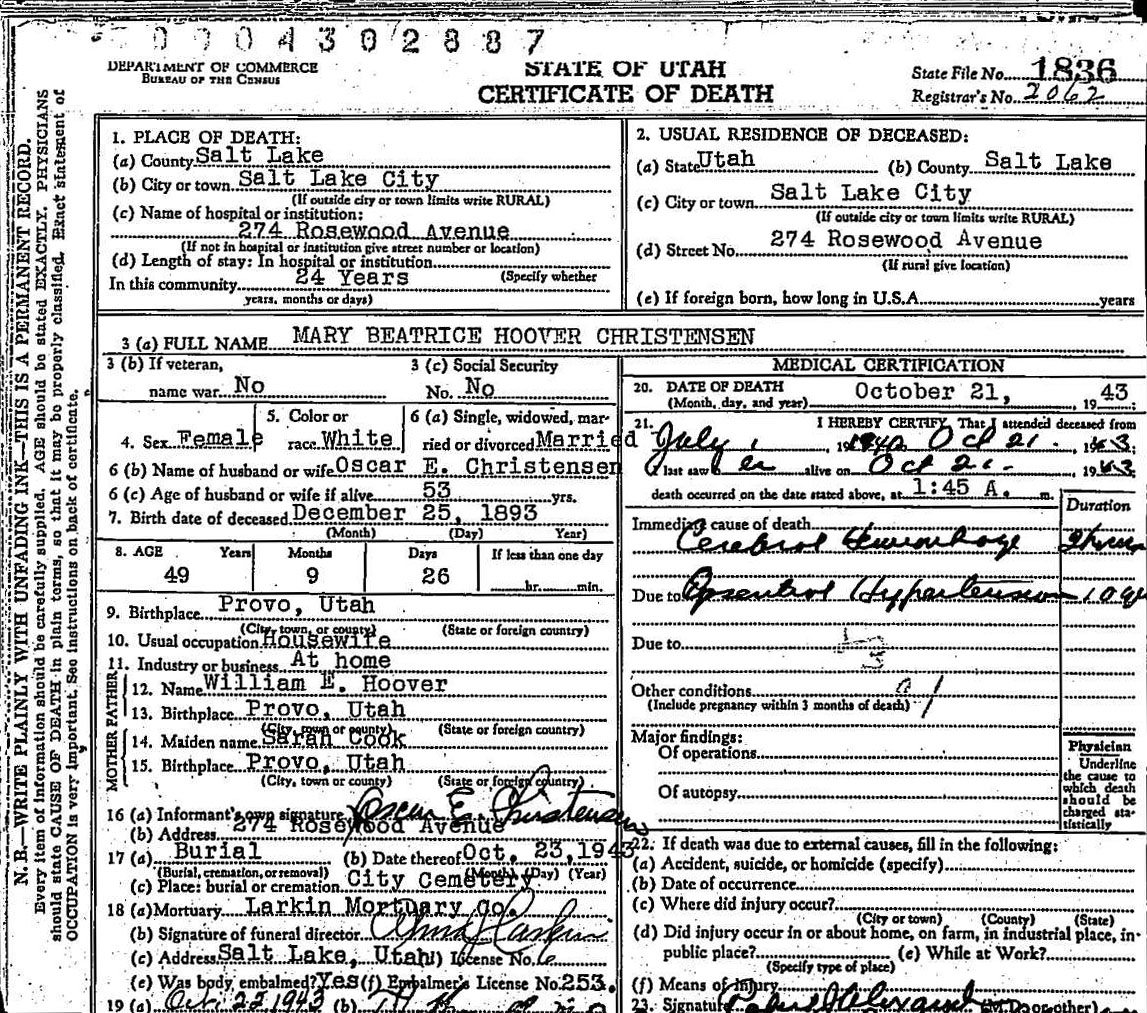 0904302887
DEPARTMENT OF COMMERCE
BUREAU OF THE CENSUS
STATE OF UTAH
CERTIFICATE OF DEATH
State File No. 1836
Registrar's No. 2062
N. B.—WRITE PLAINLY WITH UNFADING INK—THIS IS A PERMANENT RECORD.
Every item of information should be carefully supplied. AGE should be stated EXACTLY. PHYSICIANS
should state CAUSE OF DEATH in plain terms, so that it may be properly classified. Exact statement of
OCCUPATION is very important. See instructions on back of certificate.
1. PLACE OF DEATH:
(a) County Salt Lake
(b) City or town Salt Lake City
(If outside city or town limits write RURAL)
(c) Name of hospital or institution:
274 Rosewood Avenue
(If not in hospital or institution give street number or location)
(d) Length of stay: In hospital or institution
(Specify whether
In this community 24 Years
years, months or days)
2. USUAL RESIDENCE OF DECEASED:
(a) State Utah (b) County Salt Lake
(c) City or town Salt Lake City
(If outside city or town limits write RURAL)
(d) Street No. 274 Rosewood Avenue
(If rural give location)
(e) If foreign born, how long in U.S.A. years
3 (a) FULL NAME MARY BEATRICE HOOVER CHRISTENSEN
3 (b) If veteran,
name war No
3 (c) Social Security
No. No
4. Sex Female
5. Color or
race White
6 (a) Single, widowed, mar-
ried or divorced Married
6 (b) Name of husband or wife Oscar E. Christensen
6 (c) Age of husband or wife if alive 53 yrs.
7. Birth date of deceased December 25, 1893
(Month) (Day) Year)
8. AGE Years Months Days If less than one day
49 9 26 hr. min.
9. Birthplace Provo, Utah
(City, town, or county) (State or foreign country)
10. Usual occupation Housewife
11. Industry or business At home
FATHER
12. Name William E. Hoover
13. Birthplace Provo, Utah
(City, town or county) (State or foreign country)
MOTHER
14. Maiden name Sarah Cook
15. Birthplace Provo, Utah
(City, town or county) (State or foreign country)
16 (a) Informant's own signature Oscar E. Christensen
(b) Address 274 Rosewood Avenue
17 (a) Burial (b) Date thereof Oct. 23, 1943
(Burial, cremation, or removal) (Month) (Day) (Year)
(c) Place: burial or cremation City Cemetery
18 (a) Mortuary Larkin Mortuary Co.
(b) Signature of funeral director Larkin
(c) Address Salt Lake, Utah License No. 6
(e) Was body embalmed? Yes (f) Embalmer's License No. 253.
19 (a) Oct. 22 1943 (b)
MEDICAL CERTIFICATION
20. DATE OF DEATH October 21, 1943
(Month, day, and year)
21. I HEREBY CERTIFY, That I attended deceased from
July 1 1942 Oct 21. 1943
I last saw er alive on Oct 21. 1943
death occurred on the date stated above, at 1:45 A. m.
Duration
Immediate cause of death
Cerebral Hemorrhage 2 hours
Due to Essential Hypertension 10
Due to
Other conditions
(Include pregnancy within 3 months of death)
Major findings:
Of operations
Of autopsy
Physician
Underline
the cause to
which death
should be
charged sta-
tistically
22. If death was due to external causes, fill in the following:
(a) Accident, suicide, or homicide (specify)
(b) Date of occurrence
(c) Where did injury occur?
(City or town) (County) (State)
(d) Did injury occur in or about home, on farm, in industrial place, in
public place? (e) While at Work?
(Specify type of place)
(f) Means of Injury
23. Signature (M.D. or other)